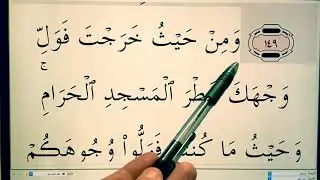 ١٤٩ وَمِنْ حَيْثُ خَرَجْتَ فَوَلِّ
وَجْهَكَ شَطْرَ ٱلْمَسْجِدِ ٱلْحَرَامِ ۚ
وَحَيْثُ مَا كُنتُمْ فَوَلُّوا۟ وُجُوهَكُمْ